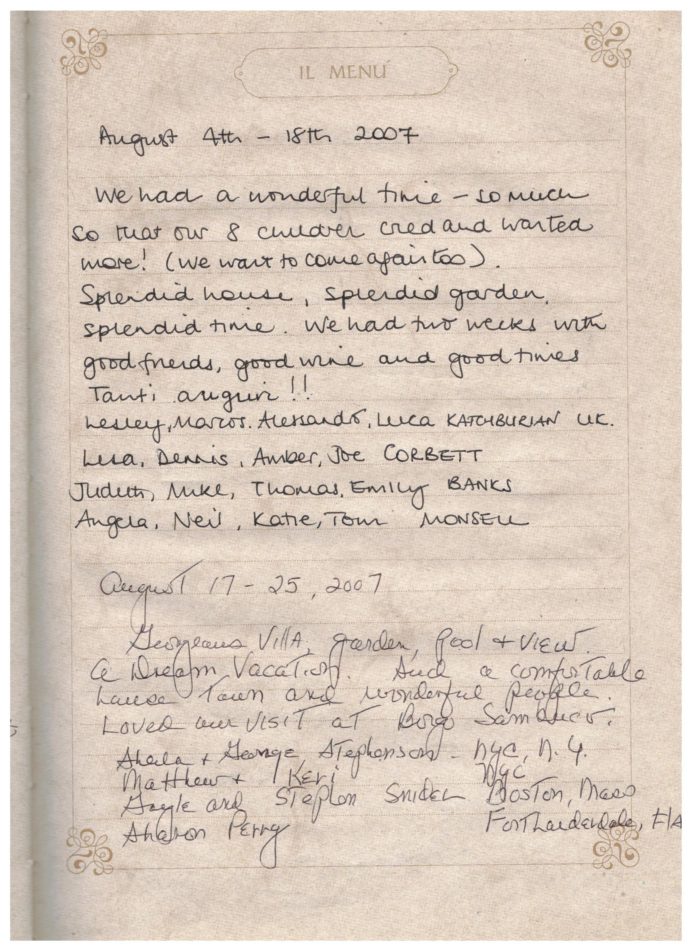 IL MENÚ
August 4th - 18th 2007
We had a wonderful time - so much
so that our 8 children cried and wanted
more! (we want to come again too).
Splendid house, splendid garden,
splendid time. We had two weeks with
good friends, good wine and good times
Tanti auguri!!
Lesley, Marcos, Alessandro, Luca KATCHBURIAN UK.
Lisa, Dennis, Amber, Joe CORBETT
Judith, Mike, Thomas, Emily BANKS
Angela, Neil, Katie, Tom MONSELL
August 17 - 25, 2007
Georgeous Villa, garden, pool + view.
a Dream Vacation. And a comfortable
house town and wonderful people.
Loved our visit at Borgo Sambuco.
Sheila + George Stephenson - NYC, N.Y.
Matthew + Keri NYC
Gayle and Stephen Snider Boston, Mass
Sharon Perry Fort Lauderdale, Fla